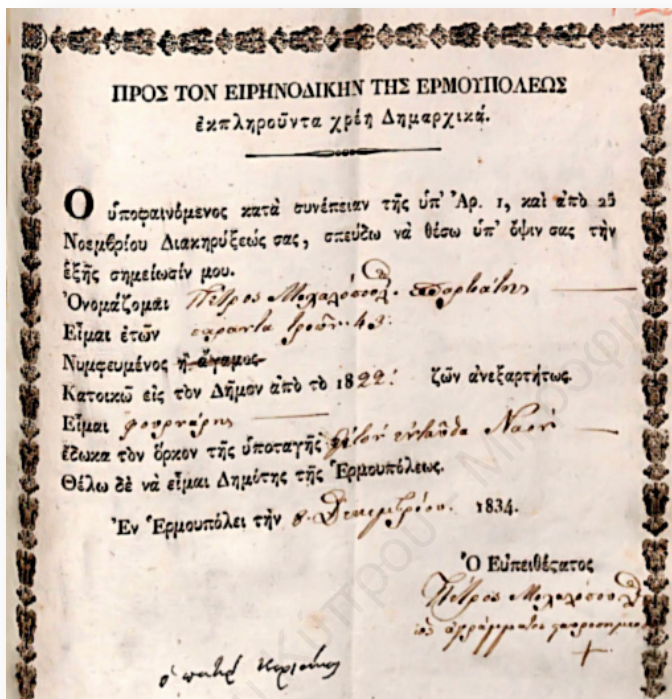 ΠΡΟΣ ΤΟΝ ΕΙΡΗΝΟΔΙΚΗΝ ΤΗΣ ΕΡΜΟΥΠΟΛΕΩΣ
ἐκπληροῦντα χρέη Δημαρχικά.
Ο ὑποφαινόμενος κατὰ συνέπειαν τῆς ὑπ' Ἀρ. 1, καὶ ἀπὸ 25
Νοεμβρίου Διακηρύξεώς σας, σπεύδω νὰ θέσω ὑπ' ὄψιν σας τὴν
ἑξῆς σημείωσίν μου.
Ὀνομάζομαι Πέτρος
Εἶμαι ἐτῶν σαράντα τριῶν 43:
Νυμφευμένος ἢ ἄγαμος
Κατοικῶ εἰς τὸν Δῆμον ἀπὸ τὸ 1822: ζῶν ἀνεξαρτήτως.
Εἶμαι φουρνάρης
ἔδωκα τὸν ὅρκον τῆς ὑποταγῆς ἐνταῦθα Ναὸν
Θέλω δὲ νὰ εἶμαι Δημότης τῆς Ἑρμουπόλεως.
Ἐν Ἑρμουπόλει τὴν 8 Δεκεμβρίου. 1834.
Ὁ Εὐπειθέσατος
Πέτρος
ὡς ἀγράμματος
+